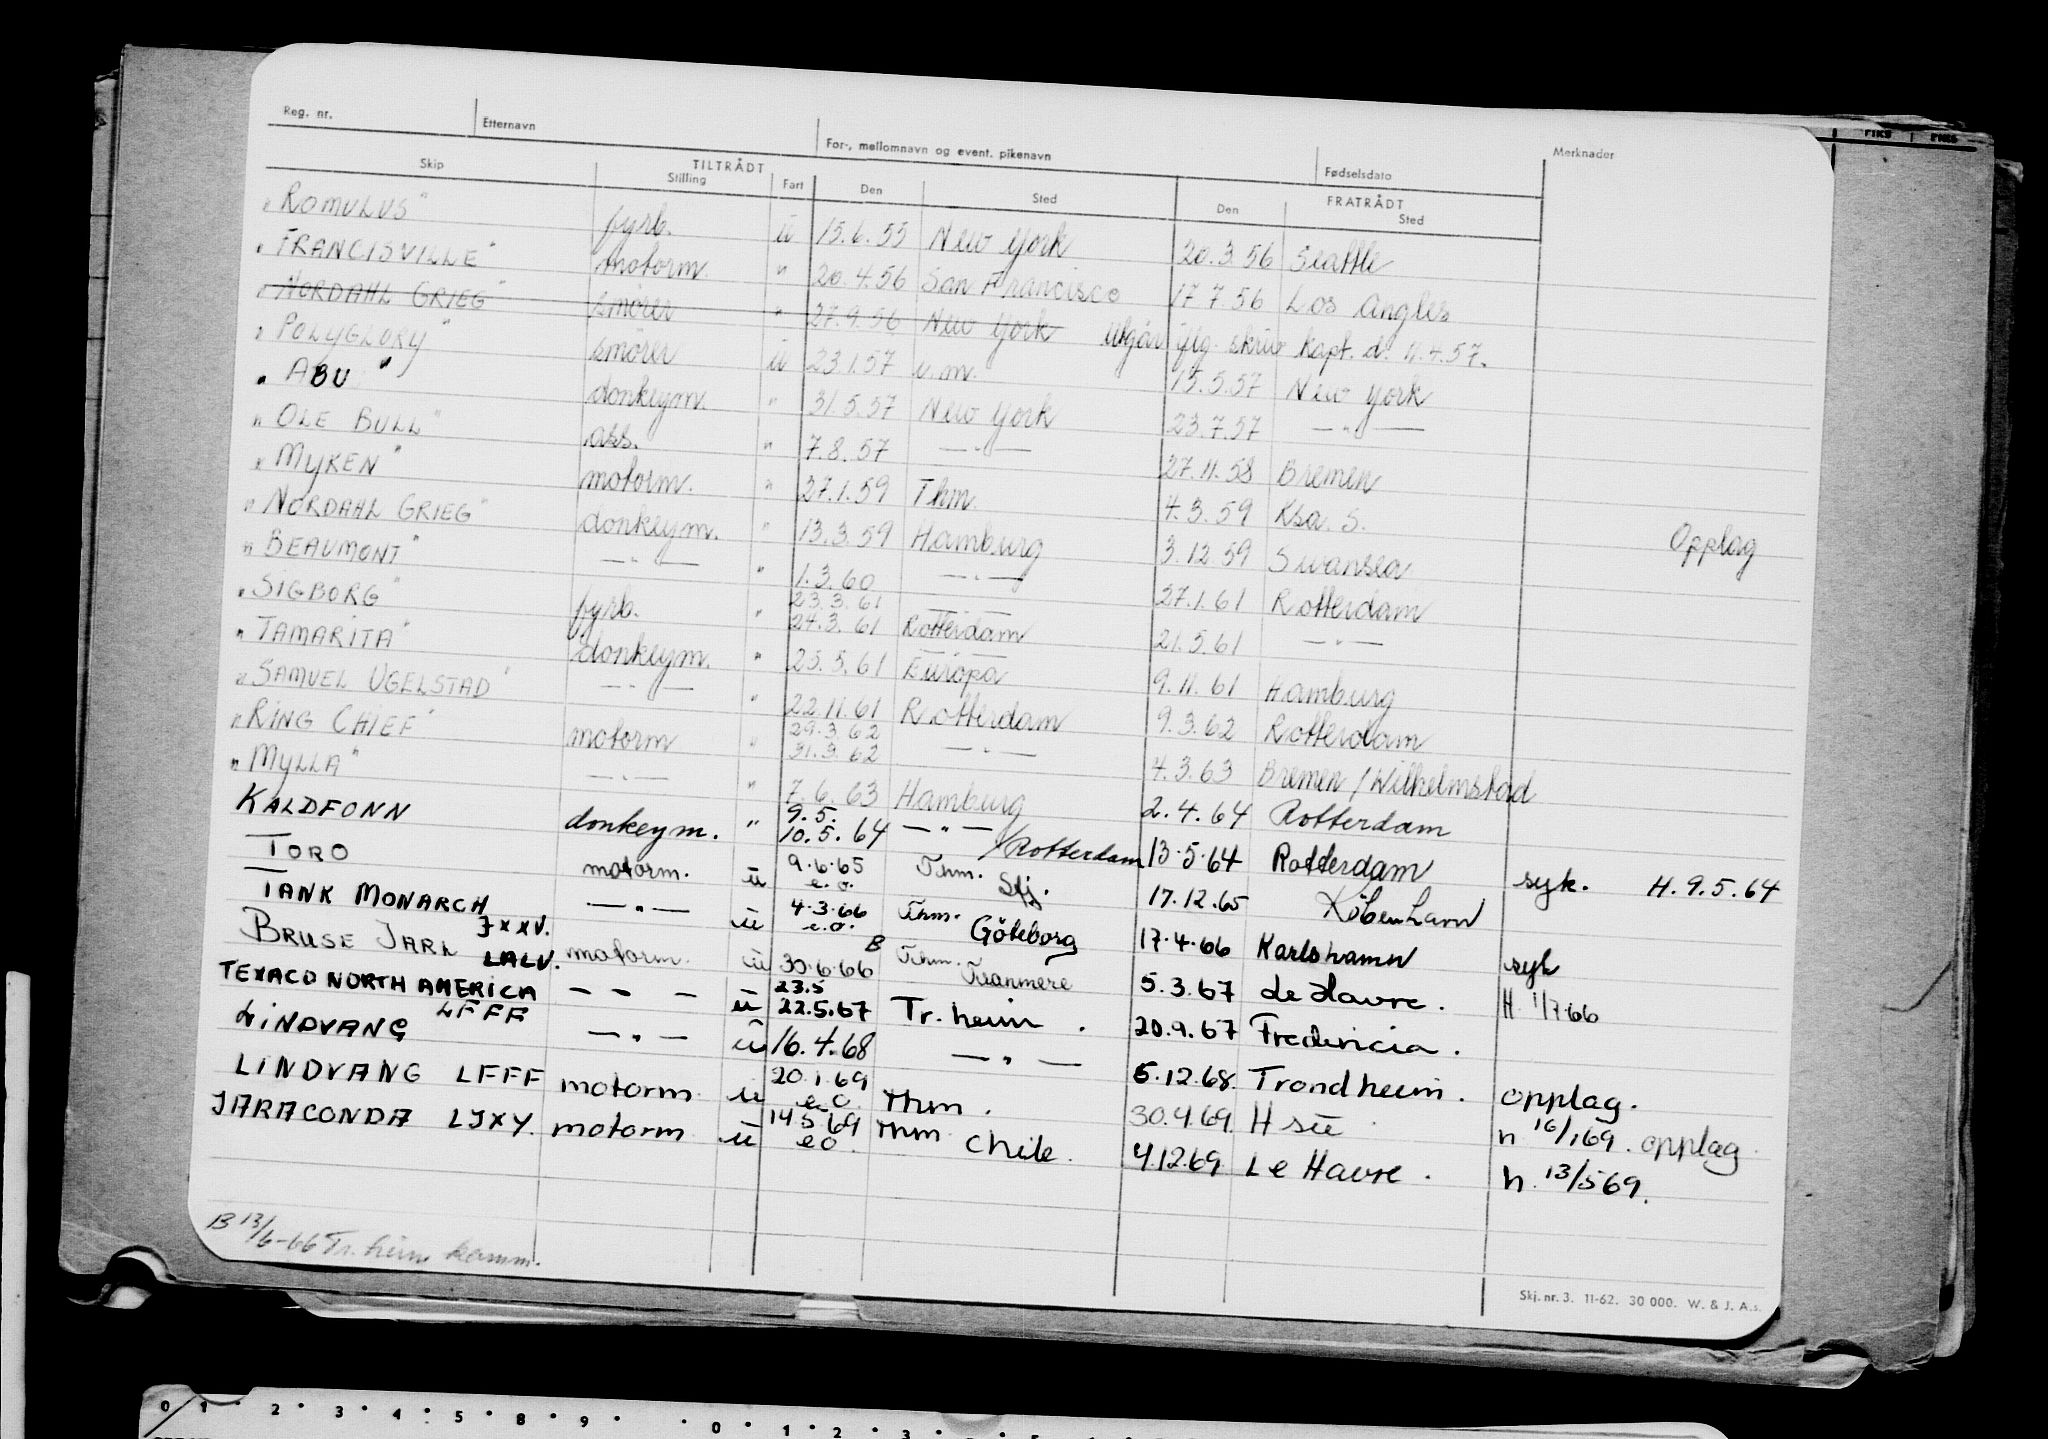 Reg. nr. Etternavn For-, mellomnavn og event. pikenavn Fødselsdato Merknader
TILTRÅDT FRATRÅDT
Skip Stilling Fart Den Sted Den Sted
"ROMULUS" fyrb. ü 15.6.55 New York 20.3.56 Seattle
"FRANCISVILLE" motorm. " 20.4.56 San Francisco 17.7.56 Los Angles
"NORDAHL GRIEG" smører " 27.9.56 New York utgår iflg. skriv kapt. d. 11.4.57.
"POLYGLORY" smører ü 23.1.57 u.m. 15.5.57 New York
"ABU" donkeym. " 31.5.57 New York 23.7.57 — " —
"OLE BULL" ass. " 7.8.57 — " — 27.11.58 Bremen
"MYKEN" motorm. " 27.1.59 Thm. 4.3.59 Ksa. S.
"NORDAHL GRIEG" donkeym. " 13.3.59 Hamburg 3.12.59 Swansea Opplag
"BEAUMONT" — " — " 1.3.60 — " — 27.1.61 Rotterdam
"SIGBORG" fyrb. " 23.3.61 24.3.61 Rotterdam 21.5.61 — " —
"TAMARITA" donkeym. " 25.5.61 Europa 9.11.61 Hamburg
"SAMUEL UGELSTAD" — " — " 22.11.61 Rotterdam 9.3.62 Rotterdam
"RING CHIEF" motorm " 29.3.62 31.3.62 — " — 4.3.63 Bremen / Wilhelmstad
"MYLLA" — " — " 7.6.63 Hamburg 2.4.64 Rotterdam
KALDFONN donkeym. " 9.5. 10.5.64 — " — / Rotterdam 13.5.64 Rotterdam syk. H. 9.5.64
TORO motorm. ü 9.6.65 e.o. Thm. Stj. 17.12.65 København
TANK MONARCH JXXV. — " — ü 4.3.66 e.o. Thm. Göteborg 17.4.66 Karlshamn syk
BRUSE JARL LALV. motorm. ü 30.6.66 B Thm. Tranmere 5.3.67 Le Havre. H 1/7.66
TEXACO NORTH AMERICA — — — ü 23.5 22.5.67 Tr.heim. 20.9.67 Fredericia.
LINDVANG LFFF — " — ü 16.4.68 — " — 5.12.68. Trondheim. opplag.
LINDVANG LFFF motorm ü 20.1.69 e.o. Thm. 30.4.69. H sü n 16/1 69. opplag.
JARACONDA LJXY. motorm ü 14.5.69 eo. Thm Chile. 4.12.69. Le Havre. h. 13/5 69.
B 13/6-66 Tr.heim komm.
Skj. nr. 3. 11-62. 30 000. W. & J. A.s.